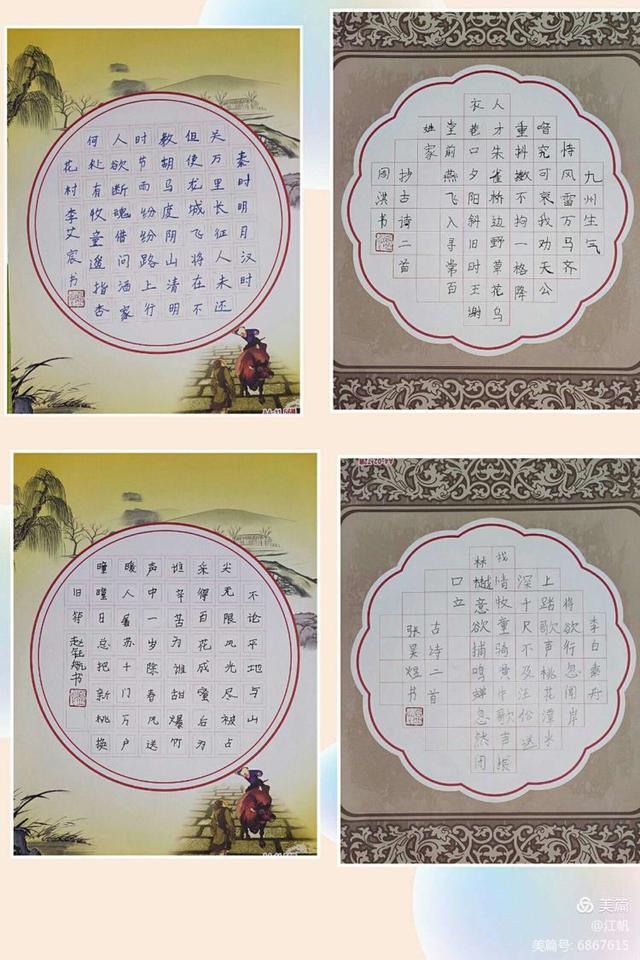 秦时明月汉时
关万里长征人未还
但使龙城飞将在不
教胡马度阴山清明
时节雨纷纷路上行
人欲断魂借问洒家
何处有牧童遥指杏
花村李艾宸书
九州生气
恃风雷万马齐
喑究可哀我劝天公
重抖擞不拘一格降
人才朱雀桥边野草花乌
衣巷口夕阳斜旧时王谢
堂前燕飞入寻常百
姓家
抄古诗二首
周洪书
不论平地与山
尖无限风光尽被占
采得百花成蜜后为
谁辛苦为谁甜爆竹
声中一岁除春风送
暖人屠苏千门万户
曈曈日总把新桃换
旧符赵钰书
李白乘舟
将欲行忽闻岸
上踏歌声桃花潭水
深千尺不及汪伦送
我情牧童骑黄牛歌声振
林樾意欲捕鸣蝉忽然闭
口立
古诗二首
张昊煜书
美篇
@江帆
美篇号: 6867615